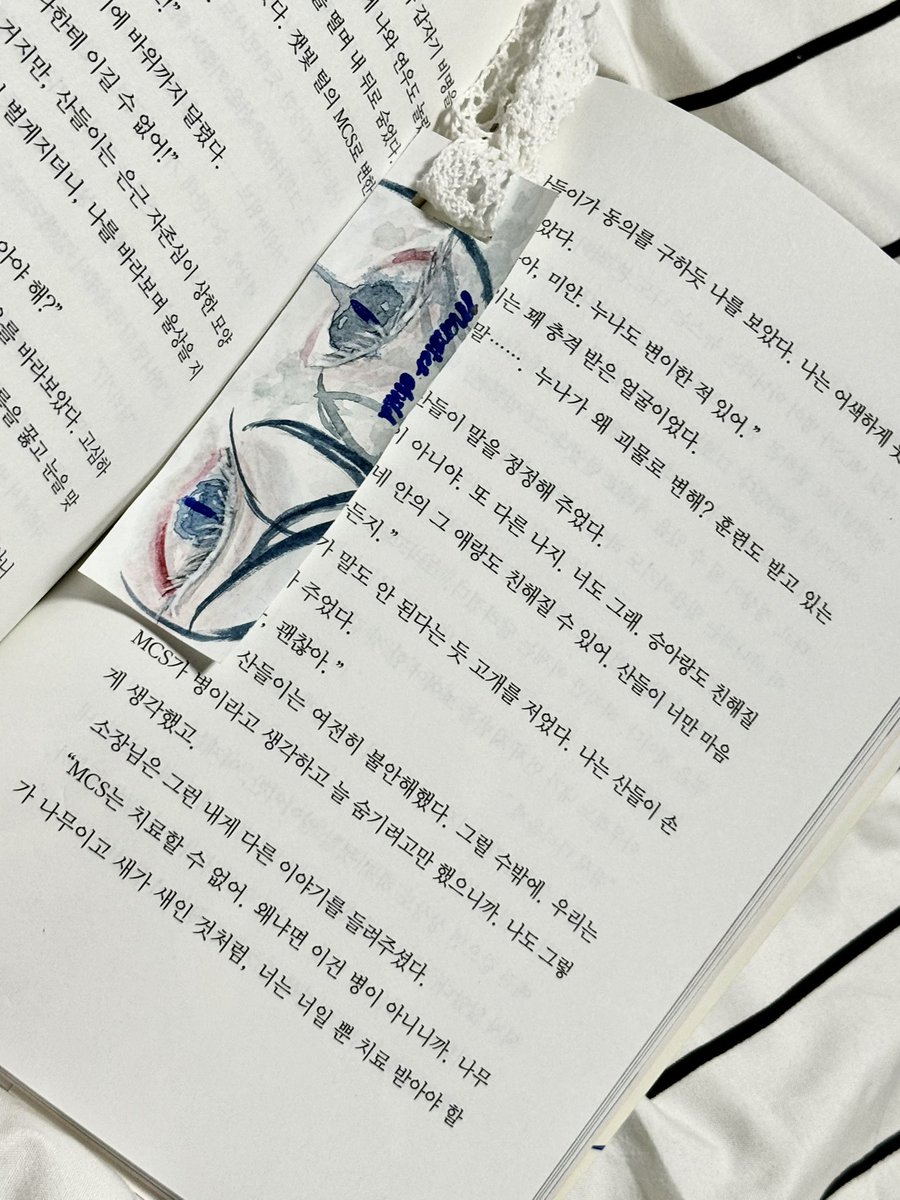 에 바위까지 달렸다.
한테 이길 수 없어!”
거지만, 산들이는 은근 자존심이 상한 모양
벌게지더니, 나를 바라보며 울상을 지
아야 해?”
를 바라보았다. 고심하
릎을 꿇고 눈을 맞
갑자기 비명을
나와 연우도 놀
을 떨며 내 뒤로 숨었다.
잿빛 털의 MCS로 변한
Monster child
들이가 동의를 구하듯 나를 보았다. 나는 어색하게
았다.
미안. 누나도 변이한 적 있어.”
는 꽤 충격 받은 얼굴이었다.
말…… 누나가 왜 괴물로 변해? 훈련도 받고 있는
들이 말을 정정해 주었다.
아니야. 또 다른 나지. 너도 그래. 승아랑도 친해질
네 안의 그 애랑도 친해질 수 있어. 산들이 너만 마음
든지.”
가 말도 안 된다는 듯 고개를 저었다. 나는 산들이 손
주었다.
괜찮아.”
산들이는 여전히 불안해했다. 그럴 수밖에. 우리는
MCS가 병이라고 생각하고 늘 숨기려고만 했으니까. 나도 그렇
게 생각했고.
소장님은 그런 내게 다른 이야기를 들려주셨다.
“MCS는 치료할 수 없어. 왜냐면 이건 병이 아니니까. 나무
가 나무이고 새가 새인 것처럼, 너는 너일 뿐 치료 받아야 할